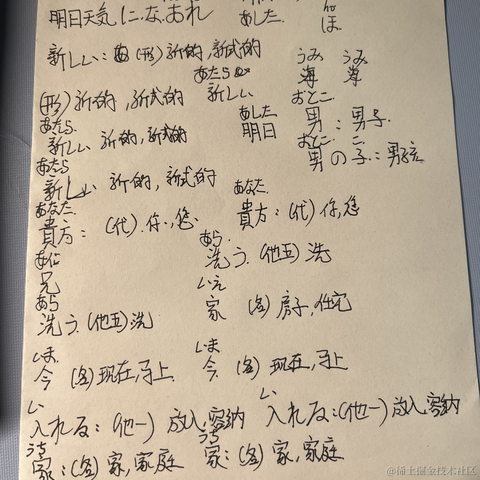 明日天気に.な.おれ
あした.
ほ.
新しい: (形) 新的,新式的
うみ うみ
海 海
あたら
新しい
(形) 新的,新式的
おとこ.
男: 男子.
あたら.
新しい 新的,新式的
あした
明日
おとこ こ.
男の子: 男孩
あたら
新しい 新的,新式的
あなた.
貴方: (代).你.,您.
あなた.
貴方: (代)你,您
あら.
洗う.(他五)洗
あに
兄
いえ
家 (名) 房子,住宅
あら
洗う.(他五)洗
いま.
今 (名) 现在,马上.
いま.
今. (名) 现在,马上
い
入れる: (他一) 放入,容纳
い
入れる:(他一)放入,容纳
うち
家:(名) 家,家庭
うち
家: (名) 家,家庭
@稀土掘金技术社区